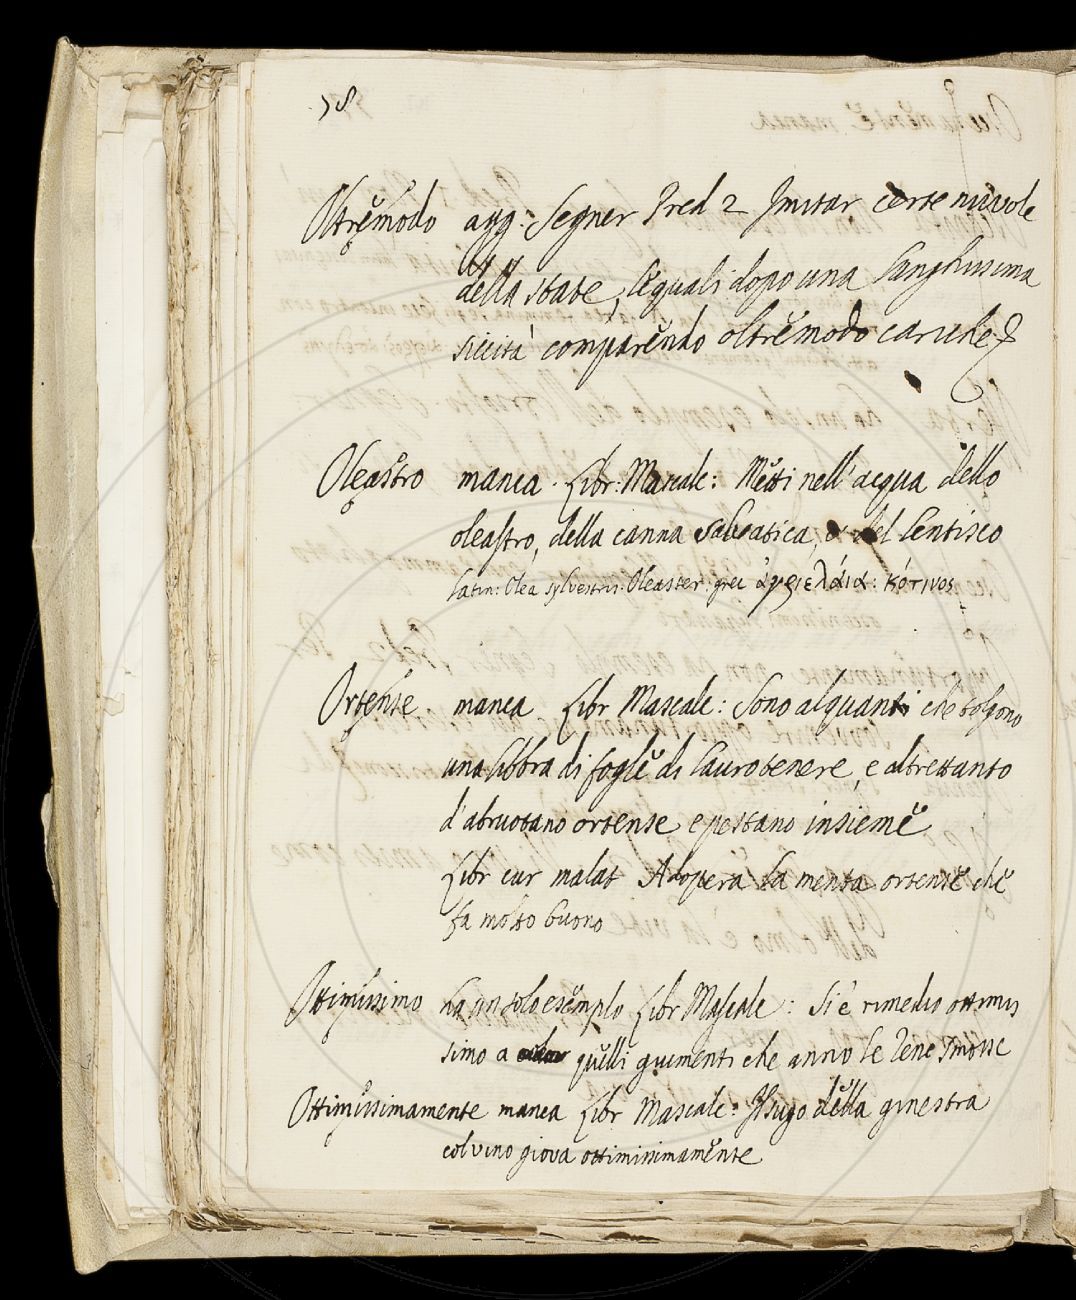 78
Oltremodo agg: Segner Pred 2 Imitar certe nuvole
della state, le quali dopo una lunghissima
siccità comparendo oltremodo cariche
Oleastro manca. Libr: Mascalc: Metti nell'acqua dello
oleastro, della canna salvatica, o del lentisco
latin: Olea sylvestris. Oleaster. grec ἀγριελάια: κότινος.
Ortense manca Libr Mascalc: Sono alquanti che tolgono
una libbra di foglie di lauro tenere, e altrettanto
d'abruotano ortense e pestano insieme
Libr cur malat Adopera la menta ortense che
fa molto buono
Ottimissimo ha un solo esemplo Libr Mascalc: Si è rimedio ottimis
simo a quelli giumenti che anno le rene smosse
Ottimissimamente manca Libr Mascalc: Il sugo della ginestra
col vino giova ottimissimamente